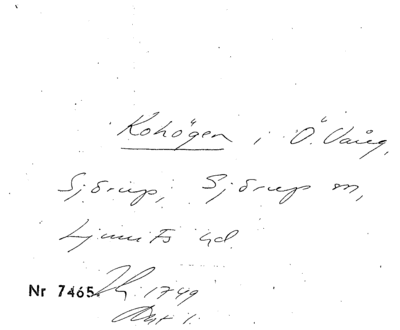 Kohögen i Ö. Vång,
Sjörup, Sjörup sn,
Ljunits hd.
Nr 7465. 1749
Akt 1.